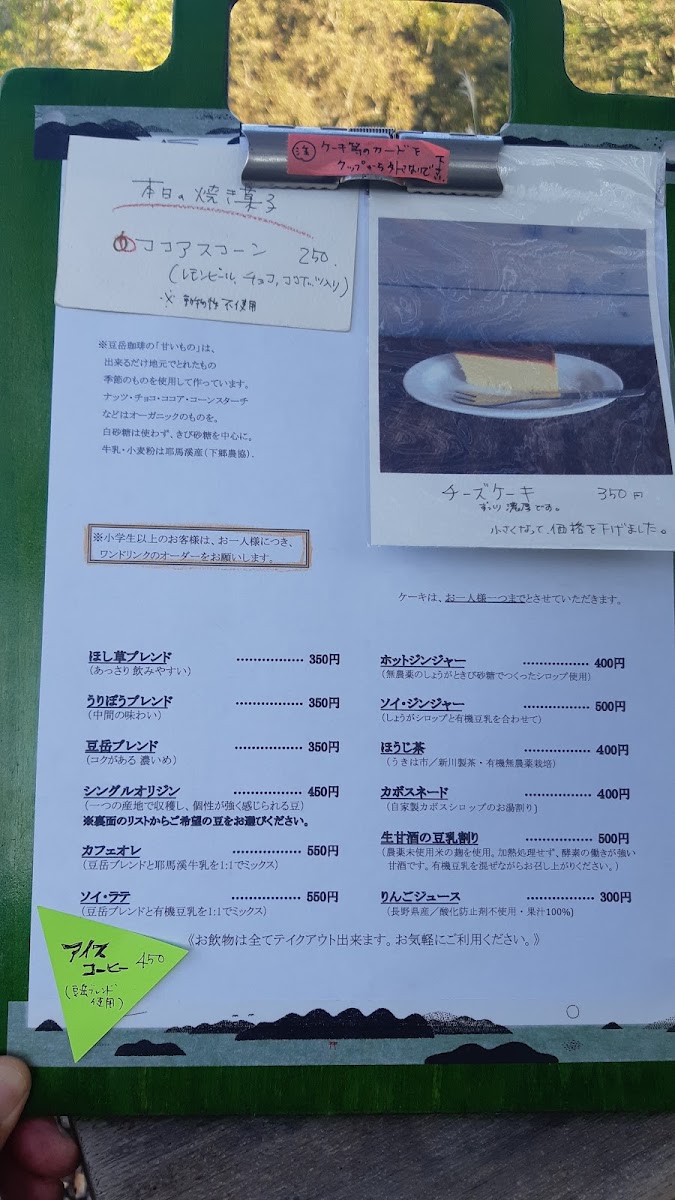 ㊟ ケーキ等のカードを
クリップから外さないで
下さい
本日の焼き菓子
ココアスコーン 250.
(レモンピール、チョコ、ココナッツ入り)
※動物性不使用
チーズケーキ 350円
ずっしり濃厚です。
小さくなって、価格を下げました。
※豆岳珈琲の「甘いもの」は、
出来るだけ地元でとれたもの
季節のものを使用して作っています。
ナッツ・チョコ・ココア・コーンスターチ
などはオーガニックのものを。
白砂糖は使わず、きび砂糖を中心に。
牛乳・小麦粉は耶馬溪産(下郷農協).
※小学生以上のお客様は、お一人様につき、
ワンドリンクのオーダーをお願いします。
ケーキは、お一人様一つまでとさせていただきます。
ほし草ブレンド ……………… 350円
(あっさり 飲みやすい)
うりぼうブレンド ……………… 350円
(中間の味わい)
豆岳ブレンド ……………… 350円
(コクがある 濃いめ)
シングルオリジン ……………… 450円
(一つの産地で収穫し、個性が強く感じられる豆)
※裏面のリストからご希望の豆をお選びください。
カフェオレ ……………… 550円
(豆岳ブレンドと耶馬溪牛乳を1:1でミックス)
ソイ・ラテ ……………… 550円
(豆岳ブレンドと有機豆乳を1:1でミックス)
ホットジンジャー ……………… 400円
(無農薬のしょうがときび砂糖でつくったシロップ使用)
ソイ・ジンジャー ……………… 500円
(しょうがシロップと有機豆乳を合わせて)
ほうじ茶 ……………… 400円
(うきは市／新川製茶・有機無農薬栽培)
カボスネード ……………… 400円
(自家製カボスシロップのお湯割り)
生甘酒の豆乳割り ……………… 500円
(農薬未使用米の麹を使用。加熱処理せず、酵素の働きが強い
甘酒です。有機豆乳を混ぜながらお召し上がりください。)
りんごジュース ……………… 300円
(長野県産／酸化防止剤不使用・果汁100%)
《お飲物は全てテイクアウト出来ます。お気軽にご利用ください。》
アイス
コーヒー 450
(豆岳ブレンド
使用)